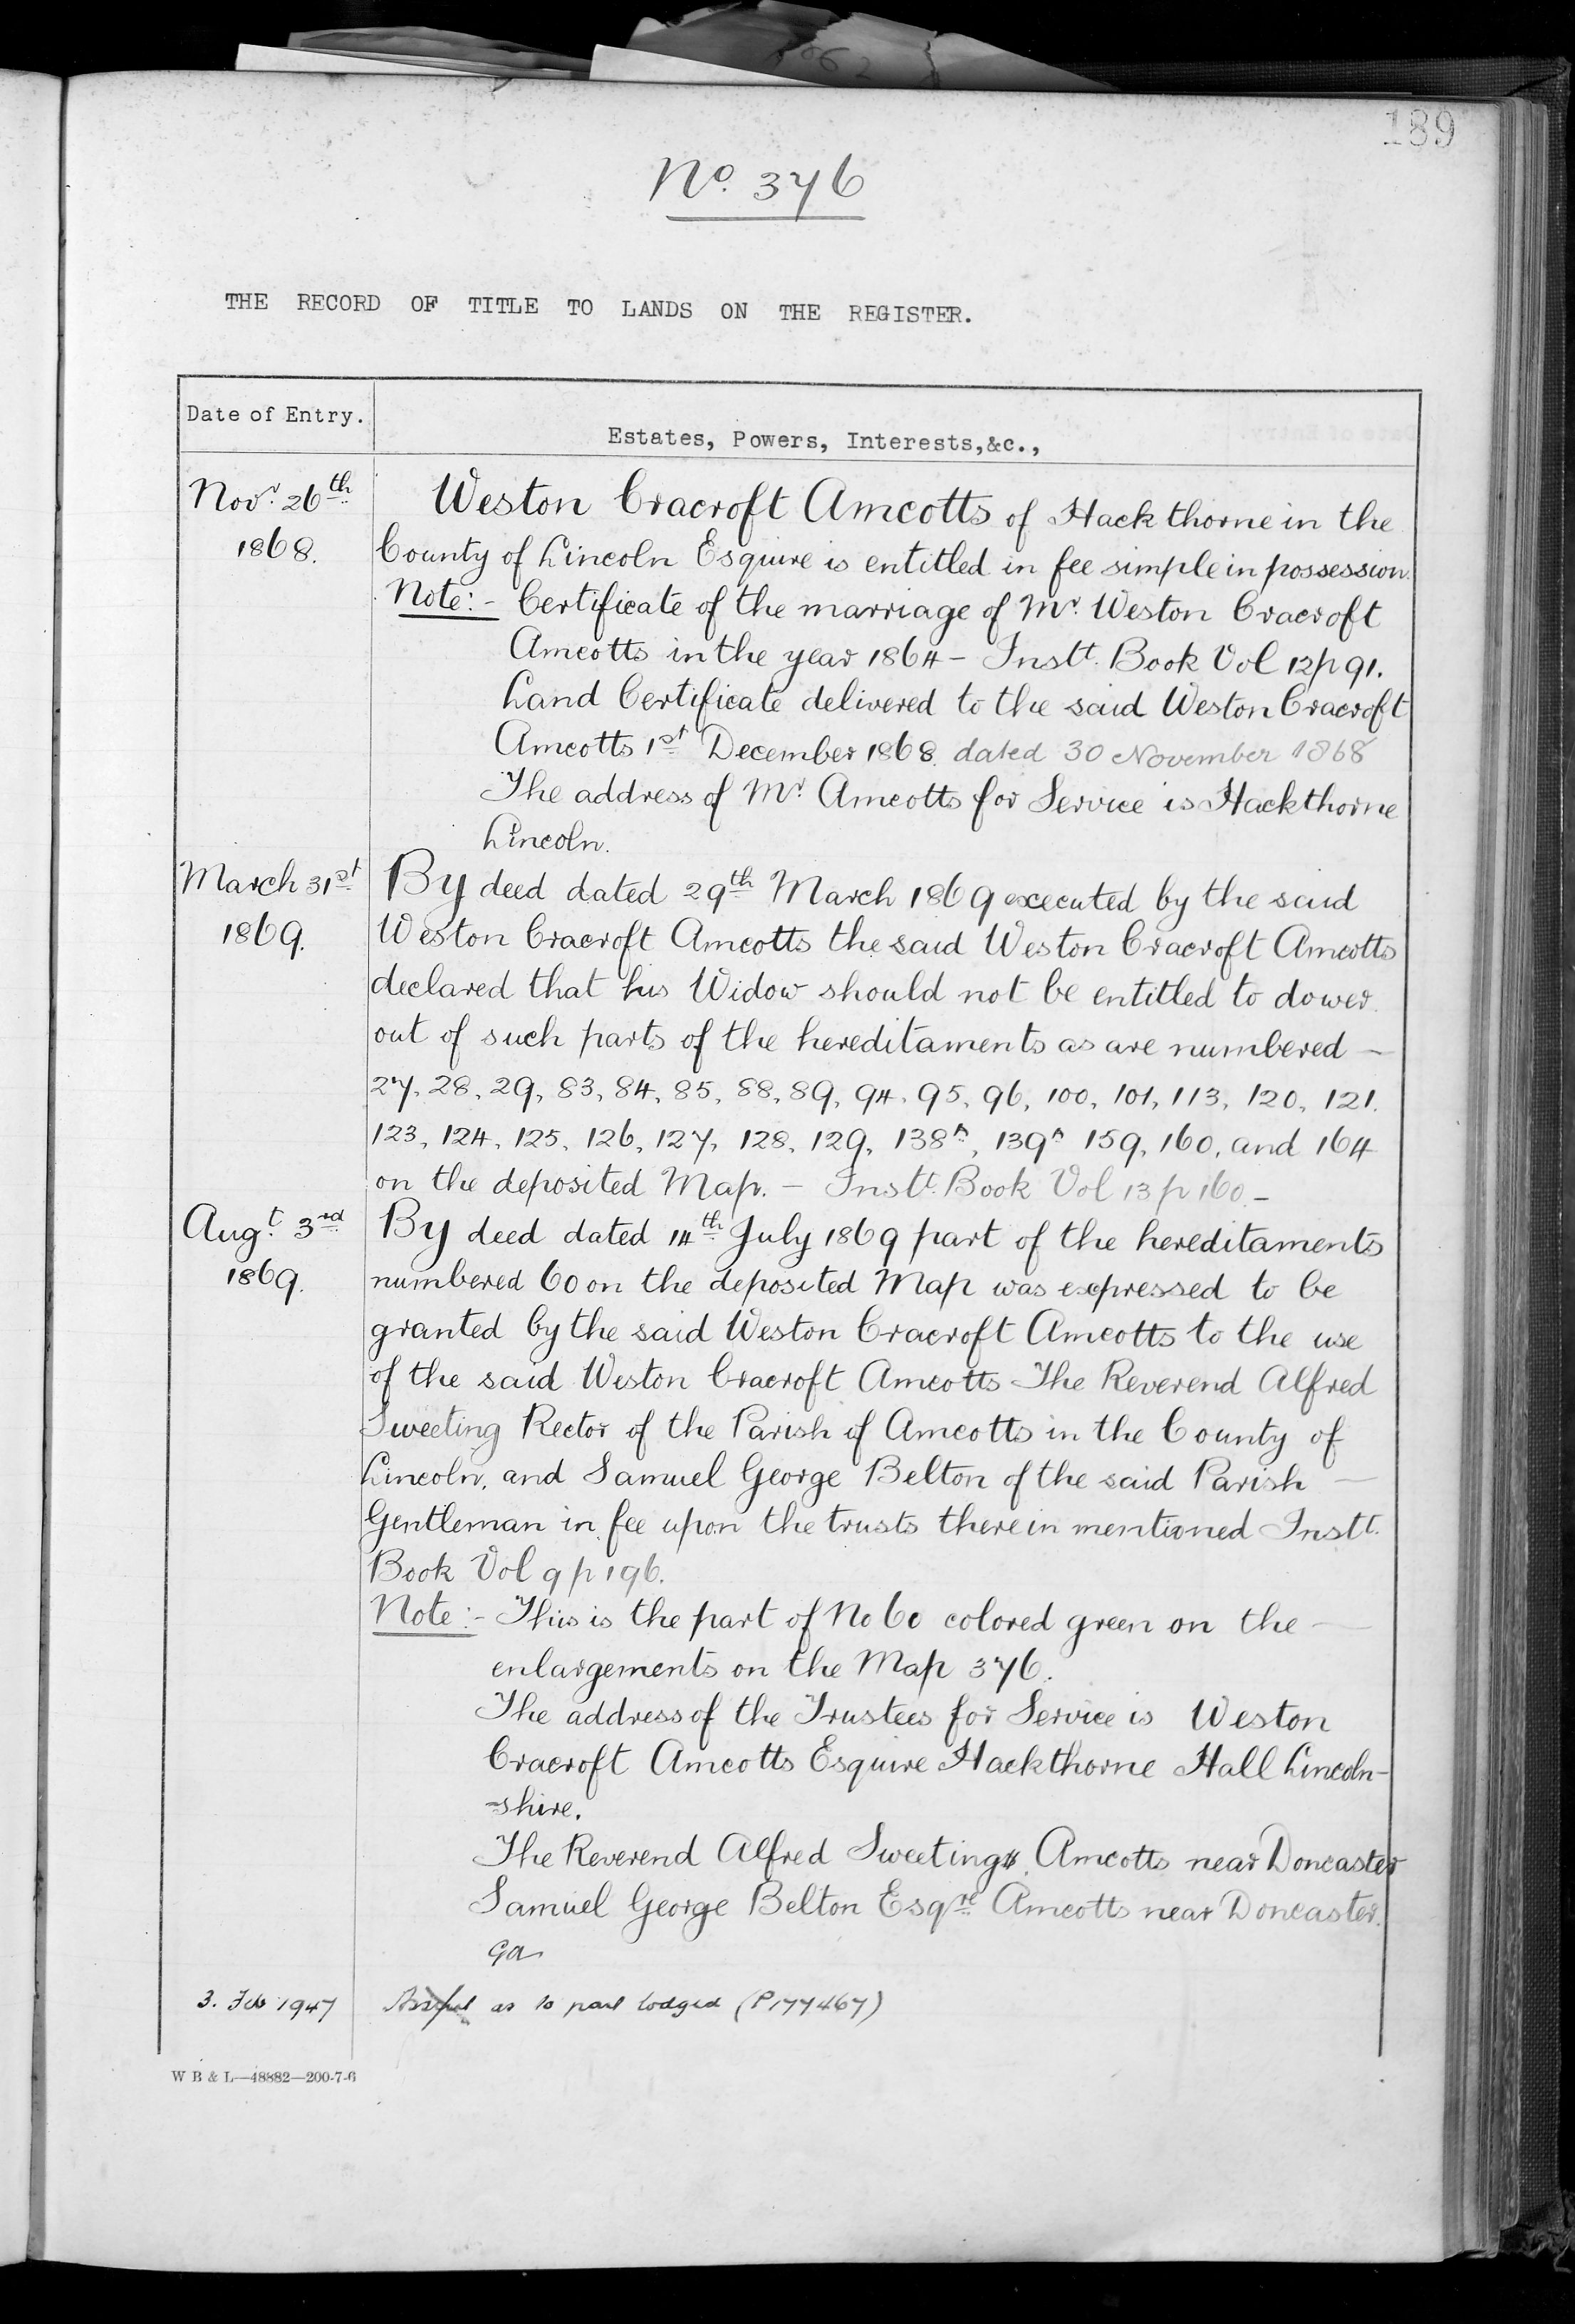 189
No. 376
THE RECORD OF TITLE TO LANDS ON THE REGISTER.
Date of Entry.
Estates, Powers, Interests,&c.,
Novr. 26th
1868.
Weston Cracroft Amcotts of Hackthorne in the
County of Lincoln Esquire is entitled in fee simple in possession.
Note:- Certificate of the marriage of Mr. Weston Cracroft
Amcotts in the year 1864 - Instt. Book Vol 12 p 91.
Land Certificate delivered to the said Weston Cracroft
Amcotts 1st December 1868. dated 30 November 1868
The address of Mr. Amcotts for Service is Hackthorne
Lincoln.
March 31st
1869.
By deed dated 29th March 1869 executed by the said
Weston Cracroft Amcotts the said Weston Cracroft Amcotts
declared that his Widow should not be entitled to dower
out of such parts of the hereditaments as are numbered -
27, 28, 29, 83, 84, 85, 88, 89, 94, 95, 96, 100, 101, 113, 120, 121.
123, 124, 125, 126, 127, 128, 129, 138A, 139A 159, 160, and 164
on the deposited Map. - Instt. Book Vol 13 p 160 -
Augt. 3rd
1869.
By deed dated 14th July 1869 part of the hereditaments
numbered 60 on the deposited Map was expressed to be
granted by the said Weston Cracroft Amcotts to the use
of the said Weston Cracroft Amcotts The Reverend Alfred
Sweeting Rector of the Parish of Amcotts in the County of
Lincoln, and Samuel George Belton of the said Parish -
Gentleman in fee upon the trusts therein mentioned Instt.
Book Vol 9 p 196.
Note:- This is the part of No 60 colored green on the -
enlargements on the Map 376.
The address of the Trustees for Service is Weston
Cracroft Amcotts Esquire Hackthorne Hall Lincoln-
-shire.
The Reverend Alfred Sweeting Amcotts near Doncaster
Samuel George Belton Esqre Amcotts near Doncaster.
3. Feb 1947
as to part lodged (P177467)
W B & L—48882—200-7-6